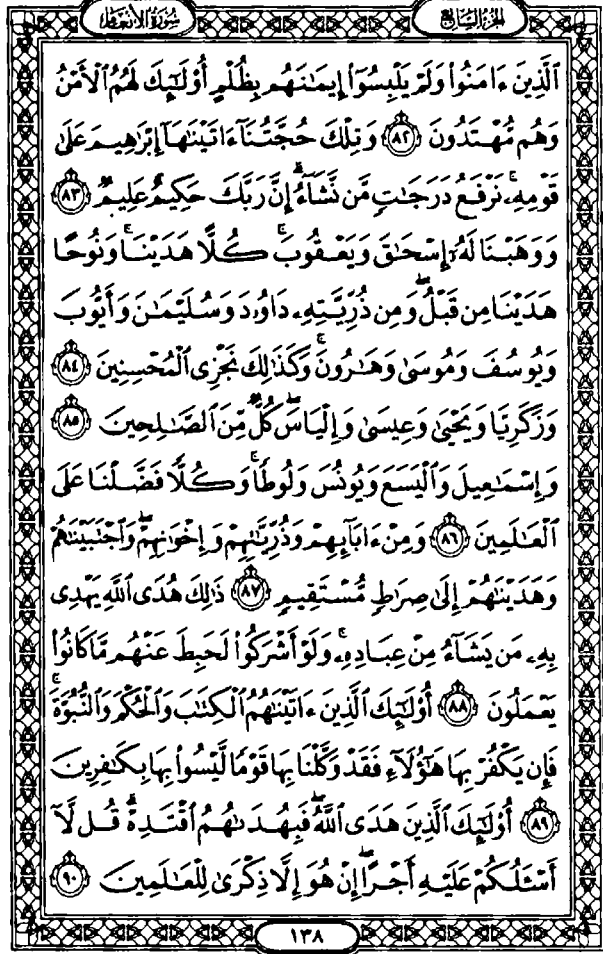 الجزء السابع
سورة الأنعام
ٱلَّذِينَ ءَامَنُوا۟ وَلَمْ يَلْبِسُوٓا۟ إِيمَـٰنَهُم بِظُلْمٍ أُو۟لَـٰٓئِكَ لَهُمُ ٱلْأَمْنُ
وَهُم مُّهْتَدُونَ ﴿٨٢﴾ وَتِلْكَ حُجَّتُنَآ ءَاتَيْنَـٰهَآ إِبْرَٰهِيمَ عَلَىٰ
قَوْمِهِۦۚ نَرْفَعُ دَرَجَـٰتٍ مَّن نَّشَآءُۗ إِنَّ رَبَّكَ حَكِيمٌ عَلِيمٌ ﴿٨٣﴾
وَوَهَبْنَا لَهُۥٓ إِسْحَـٰقَ وَيَعْقُوبَۚ كُلًّا هَدَيْنَاۚ وَنُوحًا
هَدَيْنَا مِن قَبْلُۖ وَمِن ذُرِّيَّتِهِۦ دَاوُۥدَ وَسُلَيْمَـٰنَ وَأَيُّوبَ
وَيُوسُفَ وَمُوسَىٰ وَهَـٰرُونَۚ وَكَذَٰلِكَ نَجْزِى ٱلْمُحْسِنِينَ ﴿٨٤﴾
وَزَكَرِيَّا وَيَحْيَىٰ وَعِيسَىٰ وَإِلْيَاسَۖ كُلٌّ مِّنَ ٱلصَّـٰلِحِينَ ﴿٨٥﴾
وَإِسْمَـٰعِيلَ وَٱلْيَسَعَ وَيُونُسَ وَلُوطًاۚ وَكُلًّا فَضَّلْنَا عَلَى
ٱلْعَـٰلَمِينَ ﴿٨٦﴾ وَمِنْ ءَابَآئِهِمْ وَذُرِّيَّـٰتِهِمْ وَإِخْوَٰنِهِمْۖ وَٱجْتَبَيْنَـٰهُمْ
وَهَدَيْنَـٰهُمْ إِلَىٰ صِرَٰطٍ مُّسْتَقِيمٍ ﴿٨٧﴾ ذَٰلِكَ هُدَى ٱللَّهِ يَهْدِى
بِهِۦ مَن يَشَآءُ مِنْ عِبَادِهِۦۚ وَلَوْ أَشْرَكُوا۟ لَحَبِطَ عَنْهُم مَّا كَانُوا۟
يَعْمَلُونَ ﴿٨٨﴾ أُو۟لَـٰٓئِكَ ٱلَّذِينَ ءَاتَيْنَـٰهُمُ ٱلْكِتَـٰبَ وَٱلْحُكْمَ وَٱلنُّبُوَّةَۚ
فَإِن يَكْفُرْ بِهَا هَـٰٓؤُلَآءِ فَقَدْ وَكَّلْنَا بِهَا قَوْمًا لَّيْسُوا۟ بِهَا بِكَـٰفِرِينَ
﴿٨٩﴾ أُو۟لَـٰٓئِكَ ٱلَّذِينَ هَدَى ٱللَّهُۖ فَبِهُدَىٰهُمُ ٱقْتَدِهْۗ قُل لَّآ
أَسْـَٔلُكُمْ عَلَيْهِ أَجْرًاۖ إِنْ هُوَ إِلَّا ذِكْرَىٰ لِلْعَـٰلَمِينَ ﴿٩٠﴾
١٣٨